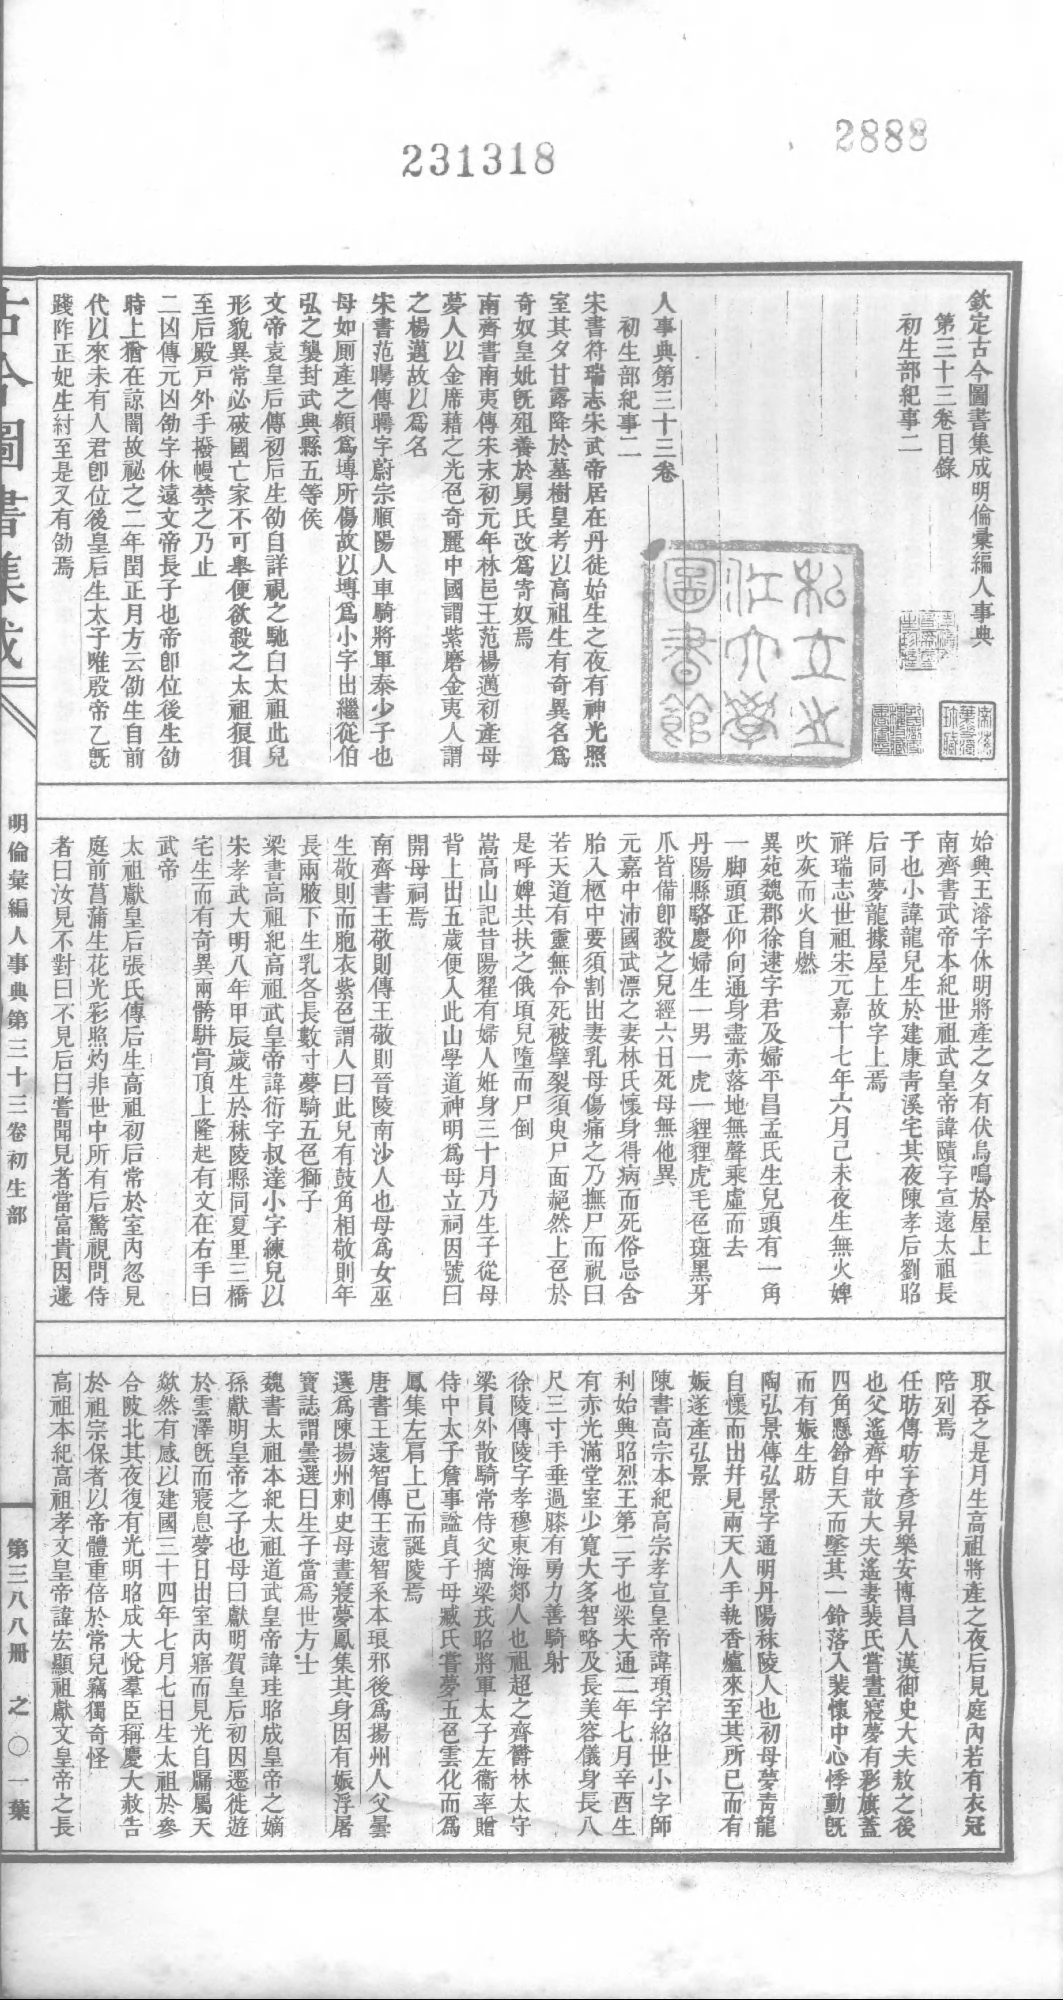 231318
2888
欽定古今圖書集成明倫彙編人事典
第三十三卷目錄
初生部紀事二
私立之江大學圖書館
人事典第三十三卷
初生部紀事二
宋書符瑞志宋武帝居在丹徒始生之夜有神光照
室其夕甘露降於墓樹皇考以高祖生有奇異名爲
奇奴皇妣旣殂養於舅氏改爲寄奴焉
南齊書南夷傳宋末初元年林邑王范楊邁初產母
夢人以金席藉之光色奇麗中國謂紫磨金夷人謂
之楊邁故以爲名
宋書范曄傳曄字蔚宗順陽人車騎將軍泰少子也
母如厠產之額爲塼所傷故以塼爲小字出繼從伯
弘之襲封武興縣五等侯
文帝袁皇后傳初后生劭自詳視之馳白太祖此兒
形貌異常必破國亡家不可舉便欲殺之太祖狼狽
至后殿戸外手撥幔禁之乃止
二凶傳元凶劭字休遠文帝長子也帝卽位後生劭
時上猶在諒闇故祕之二年閏正月方云劭生自前
代以來未有人君卽位後皇后生太子唯殷帝乙旣
踐阼正妃生紂至是又有劭焉
始興王濬字休明將產之夕有伏鳥鳴於屋上
南齊書武帝本紀世祖武皇帝諱賾字宣遠太祖長
子也小諱龍兒生於建康青溪宅其夜陳孝后劉昭
后同夢龍據屋上故字上焉
祥瑞志世祖宋元嘉十七年六月己未夜生無火婢
吹灰而火自燃
異苑魏郡徐逮字君及婦平昌孟氏生兒頭有一角
一脚頭正仰向通身盡赤落地無聲乘虛而去
丹陽縣駱慶婦生一男一虎一貍貍虎毛色斑黑牙
爪皆備卽殺之兒經六日死母無他異
元嘉中沛國武漂之妻林氏懷身得病而死俗忌含
胎入柩中要須割出妻乳母傷痛之乃撫尸而祝曰
若天道有靈無令死被擘裂須臾尸面赧然上色於
是呼婢共扶之俄頃兒墮而尸倒
嵩高山記昔陽翟有婦人姙身三十月乃生子從母
背上出五歲便入此山學道神明爲母立祠因號曰
開母祠焉
南齊書王敬則傳王敬則晉陵南沙人也母爲女巫
生敬則而胞衣紫色謂人曰此兒有鼓角相敬則年
長兩腋下生乳各長數寸夢騎五色獅子
梁書高祖紀高祖武皇帝諱衍字叔達小字練兒以
宋孝武大明八年甲辰歲生於秣陵縣同夏里三橋
宅生而有奇異兩骻駢骨頂上隆起有文在右手曰
武帝
太祖獻皇后張氏傳后生高祖初后常於室內忽見
庭前菖蒲生花光彩照灼非世中所有后驚視問侍
者曰汝見不對曰不見后曰嘗聞見者當富貴因遽
取吞之是月生高祖將產之夜后見庭內若有衣冠
陪列焉
任昉傳昉字彥昇樂安博昌人漢御史大夫敖之後
也父遙齊中散大夫遙妻裴氏嘗晝寢夢有彩旗蓋
四角懸鈴自天而墜其一鈴落入裴懷中心悸動旣
而有娠生昉
陶弘景傳弘景字通明丹陽秣陵人也初母夢青龍
自懷而出幷見兩天人手執香爐來至其所已而有
娠遂產弘景
陳書高宗本紀高宗孝宣皇帝諱頊字紹世小字師
利始興昭烈王第二子也梁大通二年七月辛酉生
有赤光滿堂室少寬大多智略及長美容儀身長八
尺三寸手垂過膝有勇力善騎射
徐陵傳陵字孝穆東海郯人也祖超之齊鬱林太守
梁員外散騎常侍父摛梁戎昭將軍太子左衞率贈
侍中太子詹事諡貞子母臧氏嘗夢五色雲化而爲
鳳集左肩上已而誕陵焉
唐書王遠智傳王遠智系本琅邪後爲揚州人父曇
選爲陳揚州刺史母晝寢夢鳳集其身因有娠浮屠
寶誌謂曇選曰生子當爲世方士
魏書太祖本紀太祖道武皇帝諱珪昭成皇帝之嫡
孫獻明皇帝之子也母曰獻明賀皇后初因遷徙遊
於雲澤旣而寢息夢日出室內寤而見光自牖屬天
歘然有感以建國三十四年七月七日生太祖於參
合陂北其夜復有光明昭成大悅羣臣稱慶大赦告
於祖宗保者以帝體重倍於常兒竊獨奇怪
高祖本紀高祖孝文皇帝諱宏顯祖獻文皇帝之長
古今圖書集成
明倫彙編人事典第三十三卷初生部
第三八八冊 之〇一葉